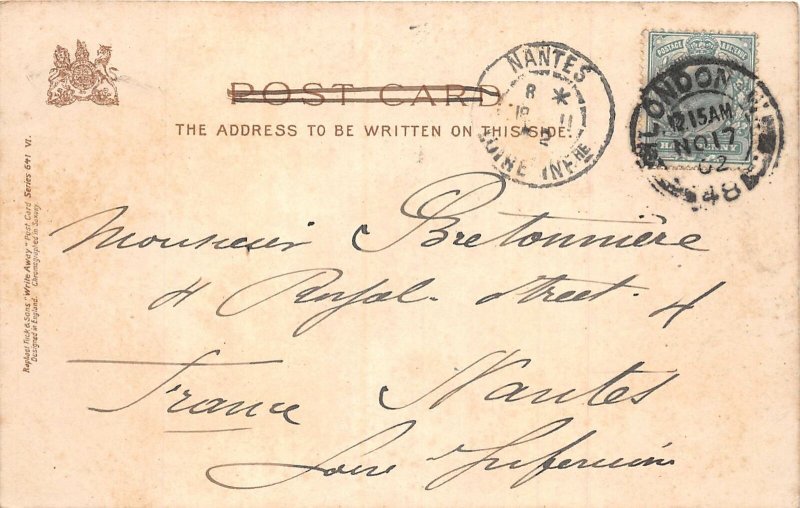 POST CARD
THE ADDRESS TO BE WRITTEN ON THIS SIDE.
NANTES
8 *
18 11
* 2
LOIRE INFRE
LONDON W.
12 15AM
NO 17
02
48
POSTAGE
HALFPENNY
Raphael Tuck & Sons' "Write Away" Post Card Series 641 VI.
Designed in England. Chromographed in Saxony.
Monsieur Bretonnière
4 Royal. Street. 4
France Nantes
Loire Inférieure